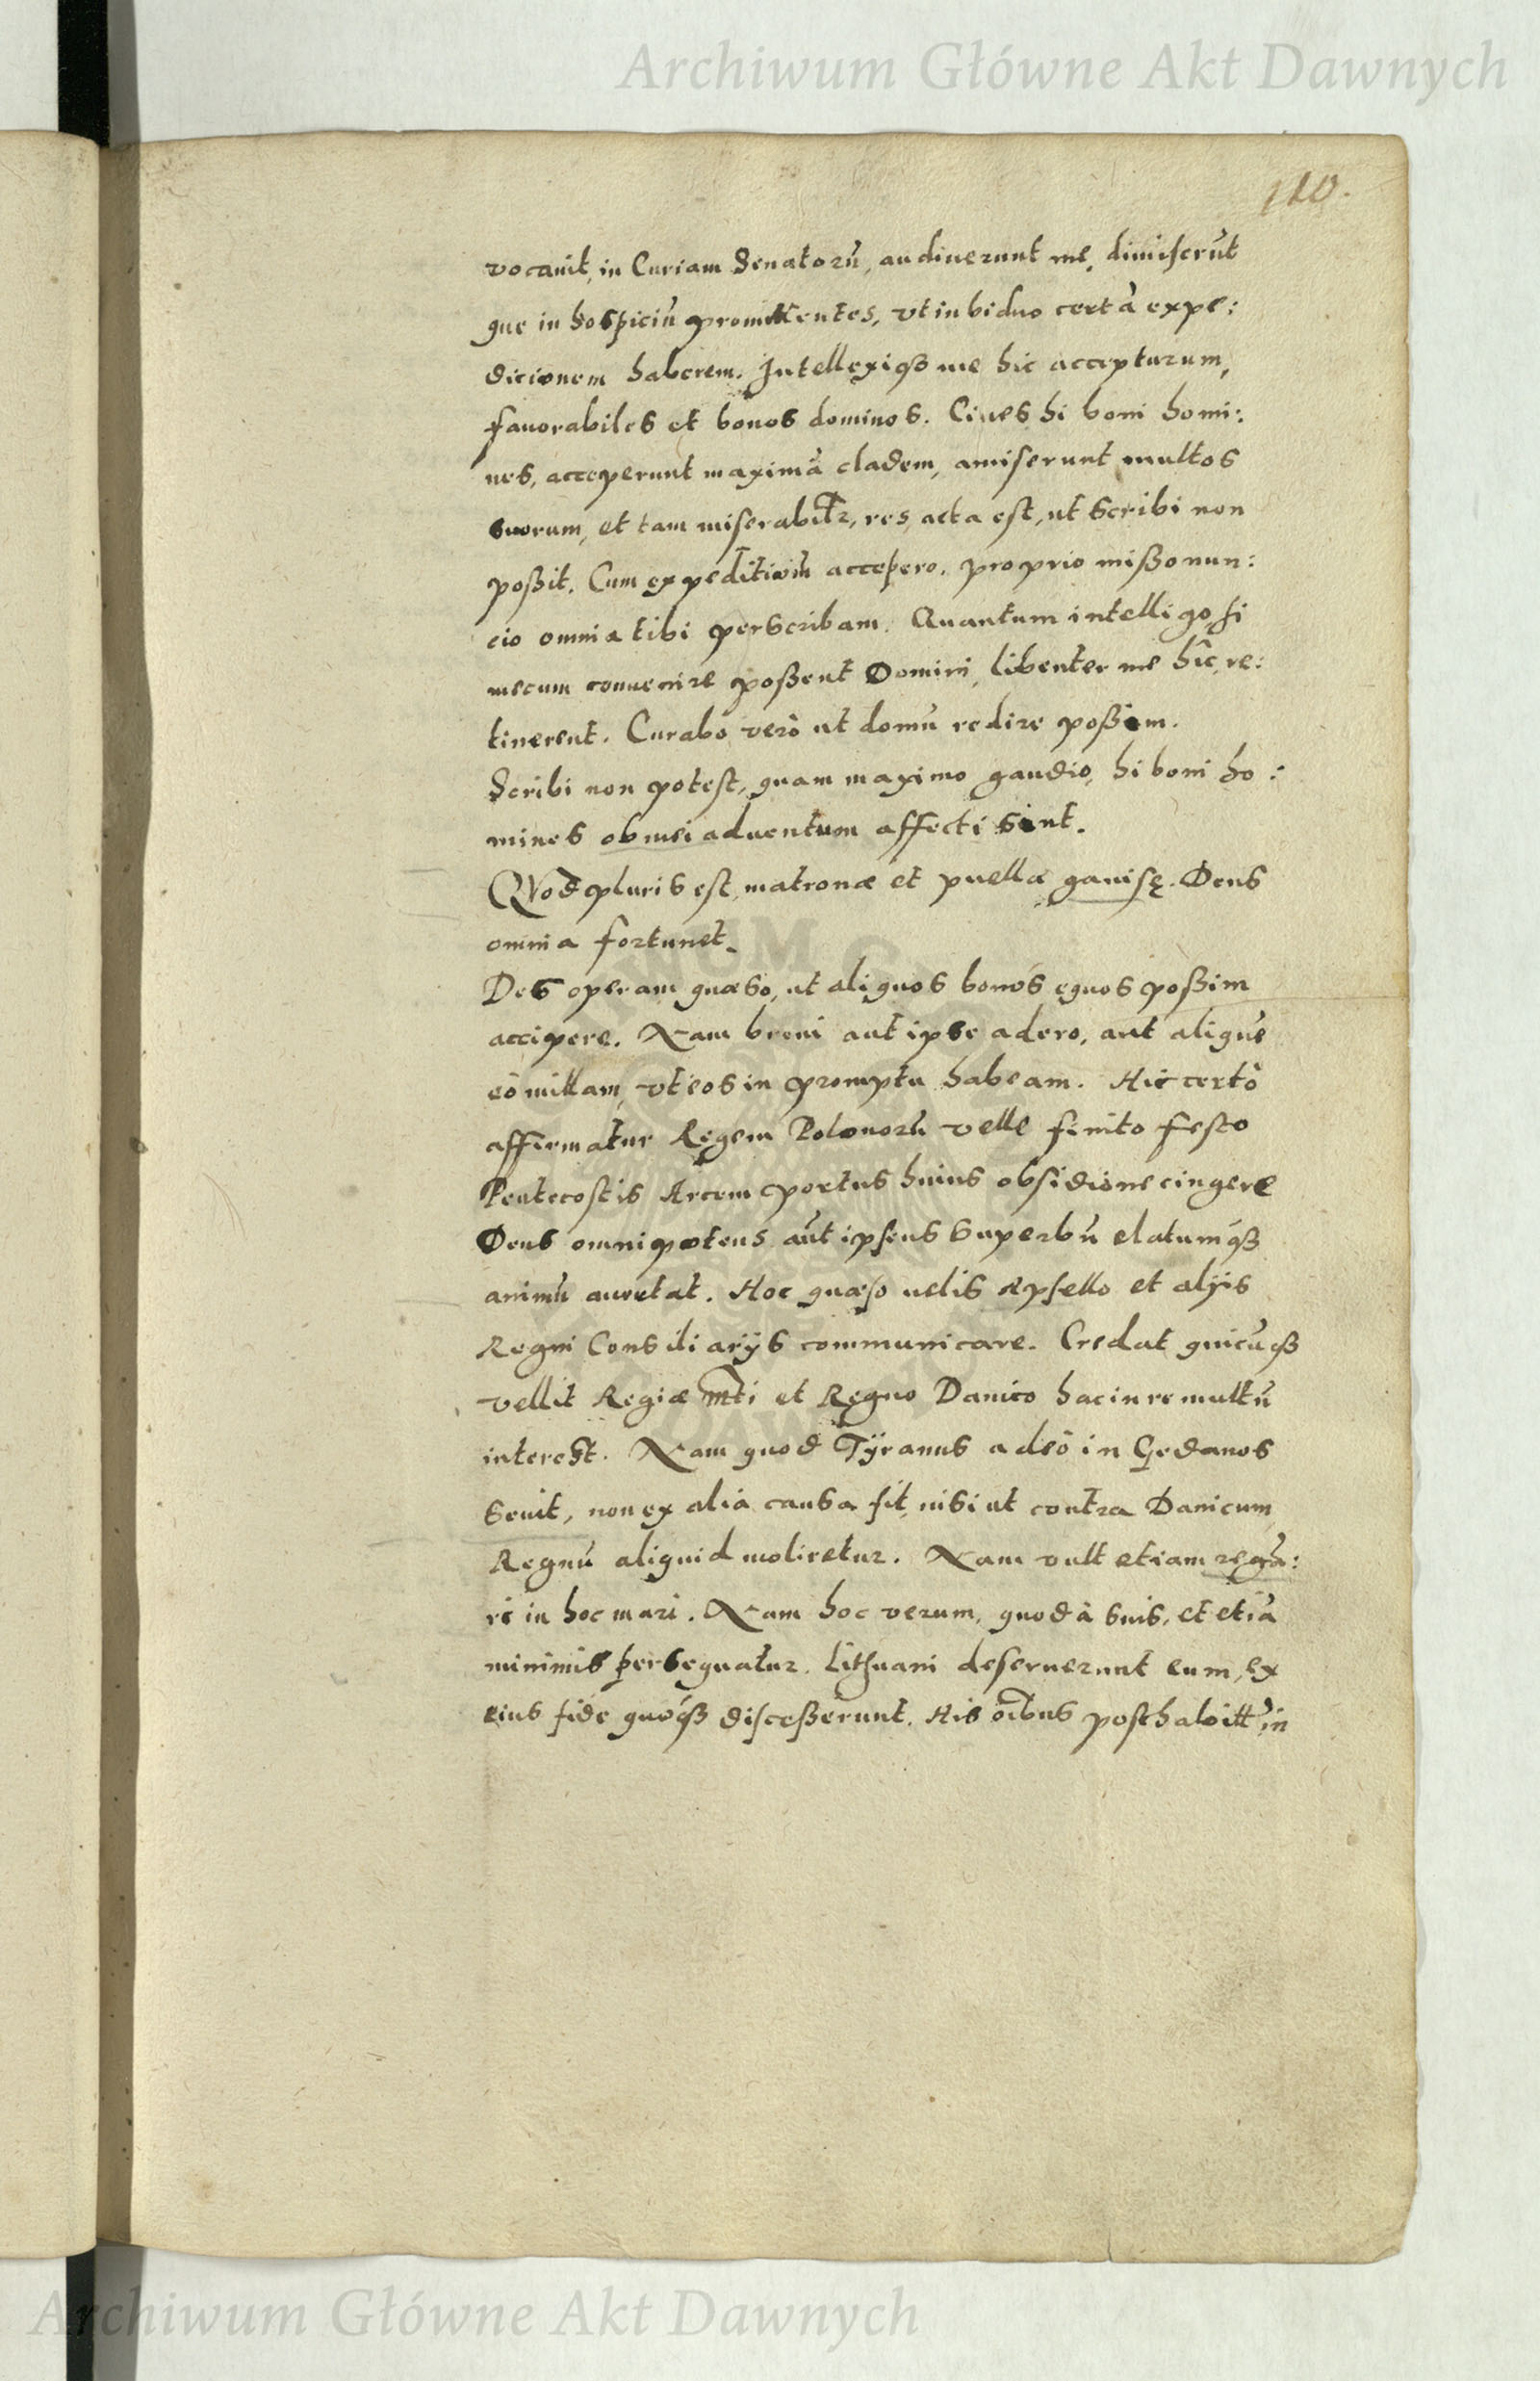 Archiwum Główne Akt Dawnych
110.
vocauit, in Curiam Senatorū, audiuerunt me, dimiserūt
que in hospiciū promittentes, vt in biduo certā expe:
dicionem haberem. Intellexiqꝫ me hic accepturum,
fauorabiles et bonos dominos. Ciues hi boni homi:
nes, acceperunt maximā cladem, amiserunt multos
suorum, et tam miserabilr̄, res, acta est, ut scribi non
poßit. Cum expeditiom̄ accepero, proprio mißo nun:
cio omnia tibi perscribam. Quantum intelligo, si
mecum conuenire poßent Domini, libenter me hîc re:
tinerent. Curabo verò ut domū redire poßim.
Scribi non potest, quam maximo gaudio, hi boni ho:
mines ob mei aduentum affecti sint.
QVod pluris est, matronæ et puellæ gauisę. Deus
omnia fortunet.
Des operam quæso, ut aliquos bonos equos poßim
accipere. Nam breui aut ipse adero, aut aliquē
eò mittam, vt eos in promptu habeam. Hic certò
affirmatur Regem Polonorū velle finito festo
Pentecostis Arcem portus huius obsidione cingere
Deus omnipotens aūt ipseus superbū elatumqꝫ
animū auertat. Hoc quæso uelis Apsello et alijs
Regni Consiliarijs communicare. Credat quicūqꝫ
vellit Regiæ mt̄i et Regno Danico hac in re multū
interest. Nam quod Tÿranus adeò in Gedanos
seuit, non ex alia causa fit, nisi ut contra Danicum
Regnū aliquid moliretur. Nam vult etiam regā:
ri in hoc mari. Nam hoc verum, quod à suis, et etiā
minimis persequatur. Lithuani deseruerunt eum, ex
eius fide quoqꝫ disceßerunt. His oībus posthabitt̄ in
Archiwum Główne Akt Dawnych